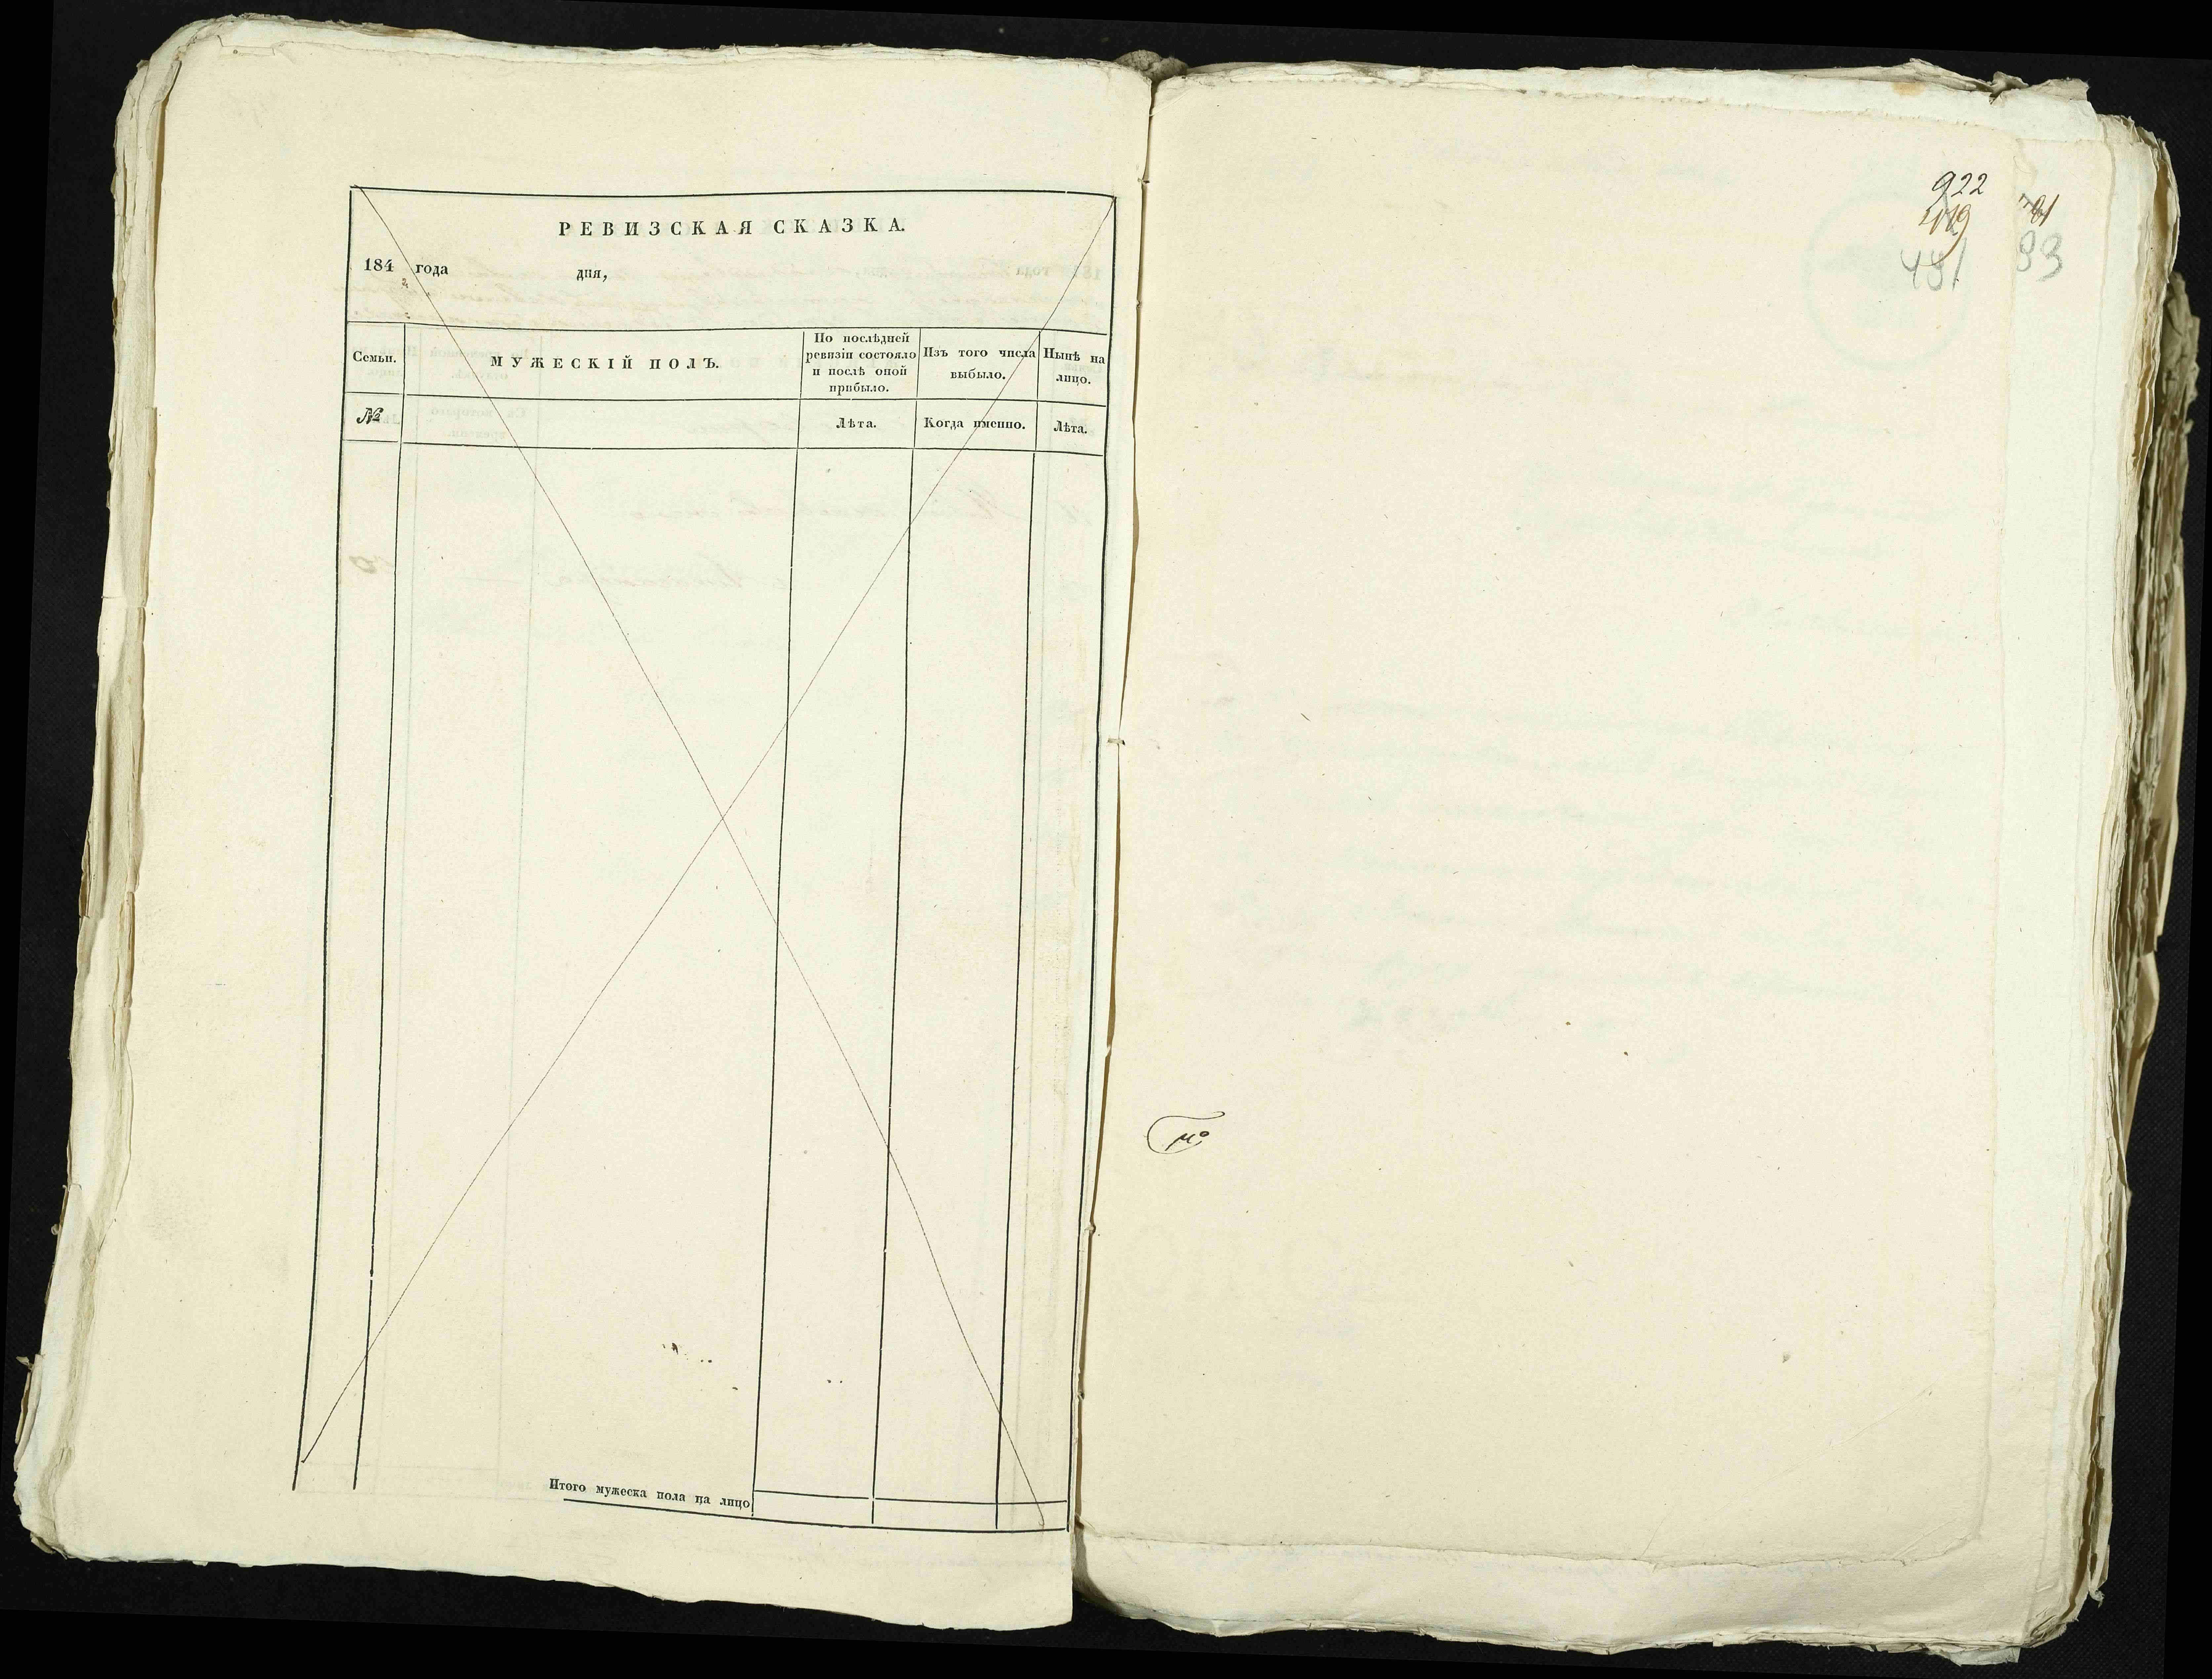 РЕВИЗСКАЯ СКАЗКА.
184 года дня,
Семьи. МУЖЕСКІЙ ПОЛЪ. По послѣдней ревизіи состояло и послѣ оной прибыло. Изъ того числа выбыло. Нынѣ на лицо.
№ Лѣта. Когда именно. Лѣта.
Итого мужеска пола на лицо
922
419
481
83